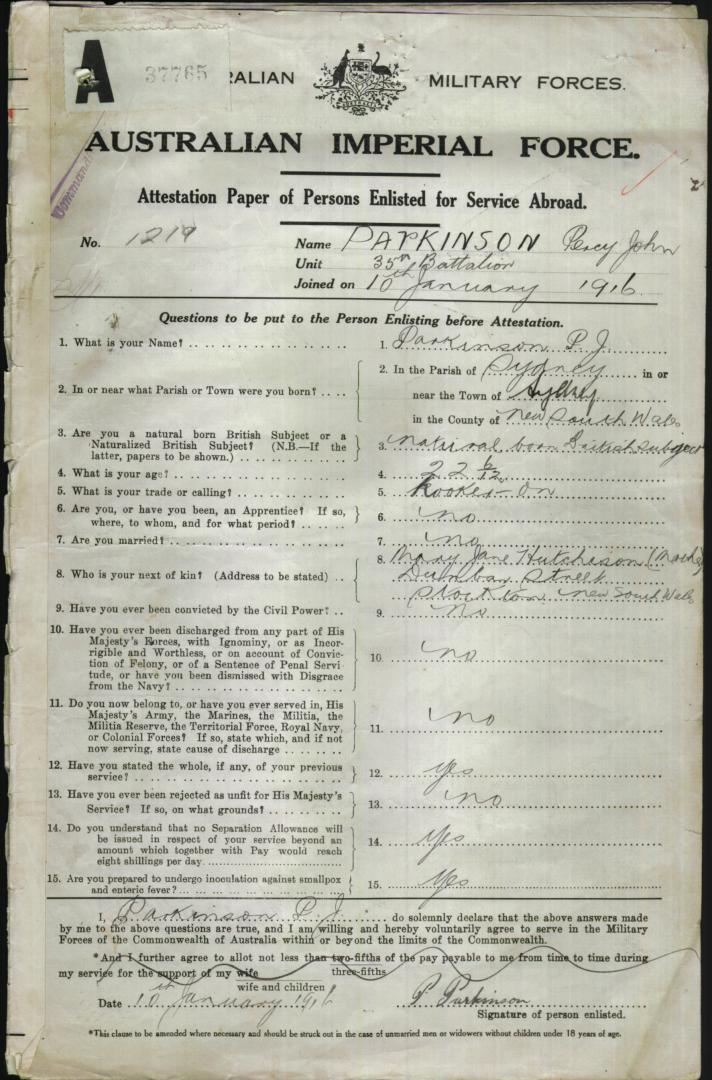 A 37765
RALIAN MILITARY FORCES.
AUSTRALIAN IMPERIAL FORCE.
Attestation Paper of Persons Enlisted for Service Abroad.
No. 1219 Name PARKINSON Percy John
Unit 35th Battalion
Joined on 10th January 1916
Questions to be put to the Person Enlisting before Attestation.
1. What is your Name? 1. Parkinson P. J.
2. In or near what Parish or Town were you born? 2. In the Parish of Sydney in or
near the Town of Sydney
in the County of New South Wales
3. Are you a natural born British Subject or a
Naturalized British Subject? (N.B.—If the
latter, papers to be shown.) 3. Natural born British Subject
4. What is your age? 4. 22 6/12
5. What is your trade or calling? 5. Hooker-On
6. Are you, or have you been, an Apprentice? If so,
where, to whom, and for what period? 6. no
7. Are you married? 7. no
8. Who is your next of kin? (Address to be stated) 8. Mary Jane Hutchison (Mother)
Dunbar Street
Stockton New South Wales
9. Have you ever been convicted by the Civil Power? 9. No
10. Have you ever been discharged from any part of His
Majesty's Forces, with Ignominy, or as Incor-
rigible and Worthless, or on account of Convic-
tion of Felony, or of a Sentence of Penal Servi-
tude, or have you been dismissed with Disgrace
from the Navy? 10. no
11. Do you now belong to, or have you ever served in, His
Majesty's Army, the Marines, the Militia, the
Militia Reserve, the Territorial Force, Royal Navy,
or Colonial Forces? If so, state which, and if not
now serving, state cause of discharge 11. no
12. Have you stated the whole, if any, of your previous
service? 12. yes
13. Have you ever been rejected as unfit for His Majesty's
Service? If so, on what grounds? 13. no
14. Do you understand that no Separation Allowance will
be issued in respect of your service beyond an
amount which together with Pay would reach
eight shillings per day. 14. yes
15. Are you prepared to undergo inoculation against smallpox
and enteric fever? 15. Yes
I, Parkinson P. J. do solemnly declare that the above answers made
by me to the above questions are true, and I am willing and hereby voluntarily agree to serve in the Military
Forces of the Commonwealth of Australia within or beyond the limits of the Commonwealth.
*And I further agree to allot not less than two-fifths of the pay payable to me from time to time during
three-fifths
my service for the support of my wife
wife and children
Date 10th January 1916 P Parkinson
Signature of person enlisted.
*This clause to be amended where necessary and should be struck out in the case of unmarried men or widowers without children under 18 years of age.